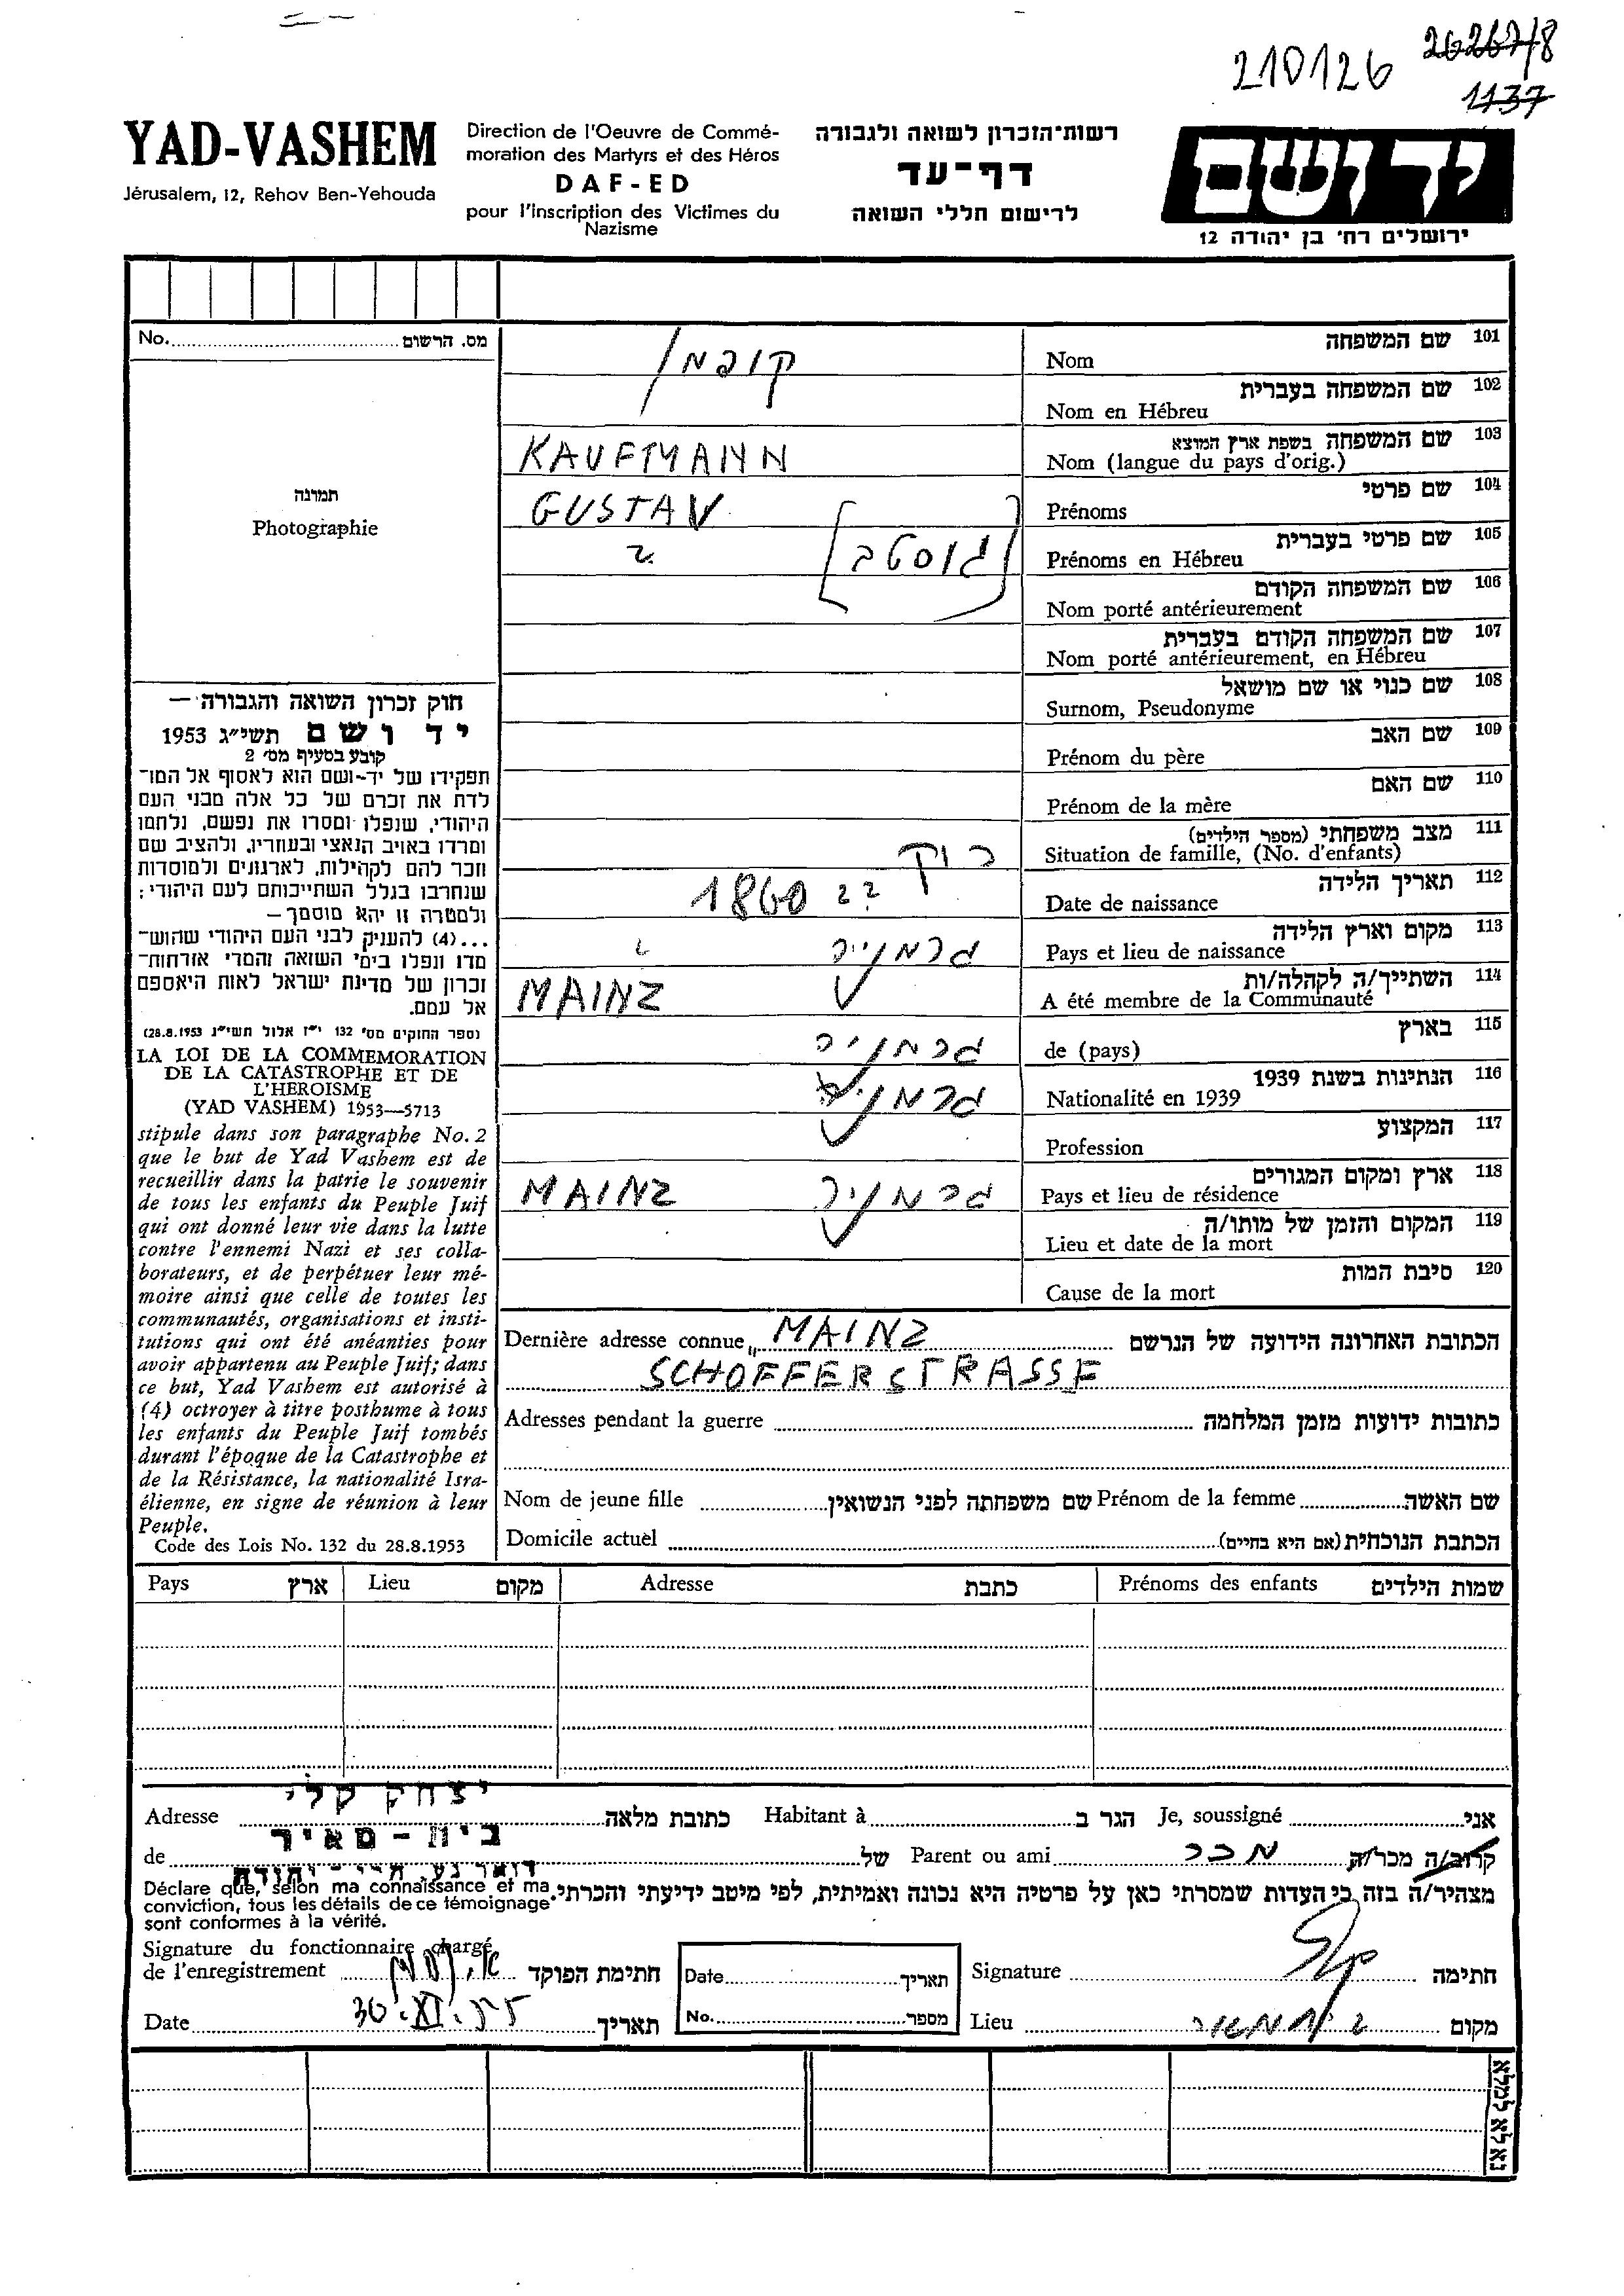 210126
26267/8
1137
YAD-VASHEM
Jérusalem, 12, Rehov Ben-Yehouda
Direction de l'Oeuvre de Commé-
moration des Martyrs et des Héros
DAF-ED
pour l'inscription des Victimes du
Nazisme
רשות־הזכרון לשואה ולגבורה
דף־עד
לרישום חללי השואה
יד ושם
ירושלים רח' בן יהודה 12
No. מס. הרשום
תמונה
Photographie
חוק זכרון השואה והגבורה —
יד ושם תשי״ג 1953
קובע בסעיף מס׳ 2
תפקידו של יד־ושם הוא לאסוף אל המו־
לדת את זכרם של כל אלה מבני העם
היהודי, שנפלו ומסרו את נפשם, נלחמו
ומרדו באויב הנאצי ובעוזריו, ולהציב שם
וזכר להם לקהילות, לארגונים ולמוסדות
שנחרבו בגלל השתייכותם לעם היהודי;
ולמטרה זו יהא מוסמך—
...(4) להעניק לבני העם היהודי שהוש־
מדו ונפלו בימי השואה והמרי אזרחות־
זכרון של מדינת ישראל לאות היאספם
אל עמם.
(ספר החוקים מס׳ 132 י״ז אלול תשי״ג 28.8.1953)
LA LOI DE LA COMMEMORATION
DE LA CATASTROPHE ET DE
L'HEROISME
(YAD VASHEM) 1953—5713
stipule dans son paragraphe No. 2
que le but de Yad Vashem est de
recueillir dans la patrie le souvenir
de tous les enfants du Peuple Juif
qui ont donné leur vie dans la lutte
contre l'ennemi Nazi et ses colla-
borateurs, et de perpétuer leur mé-
moire ainsi que celle de toutes les
communautés, organisations et insti-
tutions qui ont été anéanties pour
avoir appartenu au Peuple Juif; dans
ce but, Yad Vashem est autorisé à
(4) octroyer à titre posthume à tous
les enfants du Peuple Juif tombés
durant l'époque de la Catastrophe et
de la Résistance, la nationalité Isra-
élienne, en signe de réunion à leur
Peuple.
Code des Lois No. 132 du 28.8.1953
101 שם המשפחה
Nom קופמן
102 שם המשפחה בעברית
Nom en Hébreu
103 שם המשפחה בשפת ארץ המוצא
Nom (langue du pays d'orig.) KAUFMANN
104 שם פרטי
Prénoms GUSTAV
105 שם פרטי בעברית
Prénoms en Hébreu [גוסטב]
106 שם המשפחה הקודם
Nom porté antérieurement
107 שם המשפחה הקודם בעברית
Nom porté antérieurement, en Hébreu
108 שם כנוי או שם מושאל
Surnom, Pseudonyme
109 שם האב
Prénom du père
110 שם האם
Prénom de la mère
111 מצב משפחתי (מספר הילדים)
Situation de famille, (No. d'enfants) רוק
112 תאריך הלידה
Date de naissance 1860 ??
113 מקום וארץ הלידה
Pays et lieu de naissance גרמניה
114 השתייך/ה לקהלה/ות
A été membre de la Communauté MAINZ
115 בארץ
de (pays) גרמניה
116 הנתינות בשנת 1939
Nationalité en 1939 גרמנית
117 המקצוע
Profession
118 ארץ ומקום המגורים
Pays et lieu de résidence גרמניה MAINZ
119 המקום והזמן של מותו/ה
Lieu et date de la mort
120 סיבת המות
Cause de la mort
Dernière adresse connue MAINZ הכתובת האחרונה הידועה של הנרשם
SCHÖFFERSTRASSE
Adresses pendant la guerre כתובות ידועות מזמן המלחמה
Nom de jeune fille שם משפחתה לפני הנשואין Prénom de la femme שם האשה
Domicile actuel הכתבת הנוכחית (אם היא בחיים)
Pays ארץ Lieu מקום Adresse כתבת Prénoms des enfants שמות הילדים
יצחק קלי
Adresse כתובת מלאה Habitant à הגר ב Je, soussigné אני
בית-מאיר
de של Parent ou ami מכר קרוב/ה מכר/ה
דואר נע, הרי-יהודה
מצהיר/ה בזה כי העדות שמסרתי כאן על פרטיה היא נכונה ואמיתית, לפי מיטב ידיעתי והכרתי.
Déclare que, selon ma connaissance et ma
conviction, tous les détails de ce témoignage
sont conformes à la vérité.
Signature du fonctionnaire chargé
de l'enregistrement חתימת הפוקד
Date תאריך
Signature חתימה
Date 30.XI.55 תאריך
No. מספר
Lieu בית מאיר מקום
נא לא למלא